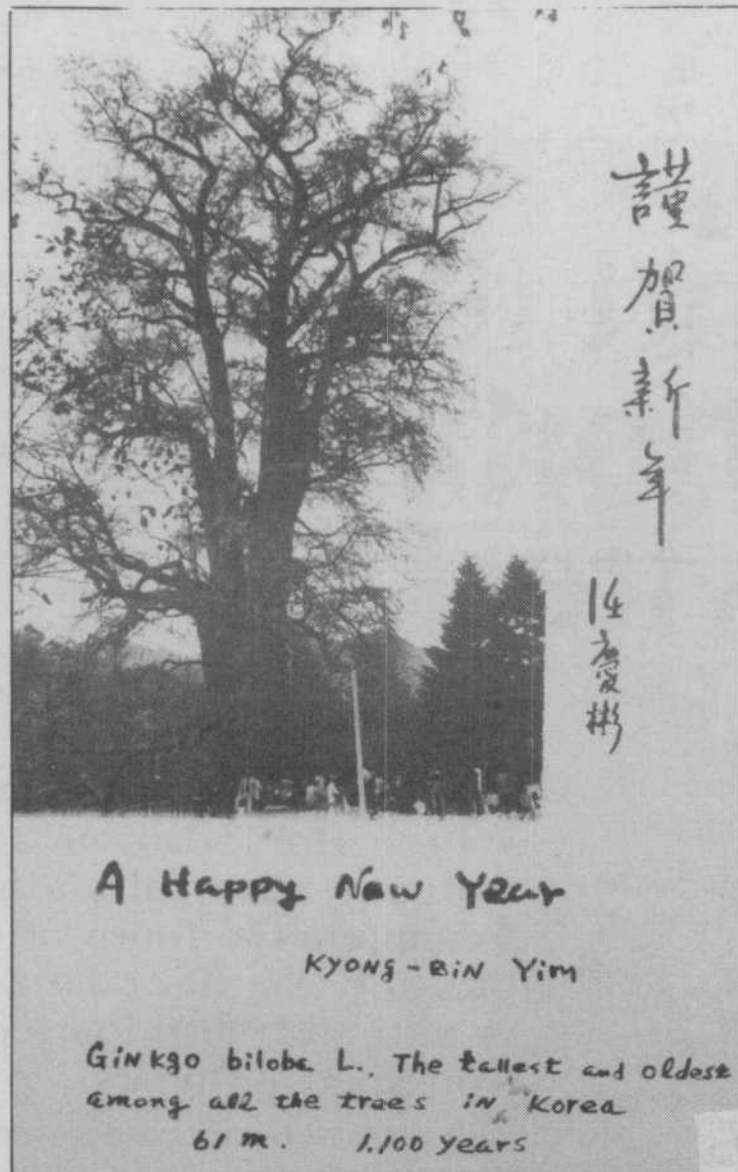 謹賀新年
任慶彬
A Happy New Year
KYONG-BIN Yim
GiNkgo biloba L., The tallest and oldest
among all the trees iN Korea
61 m. 1.100 years